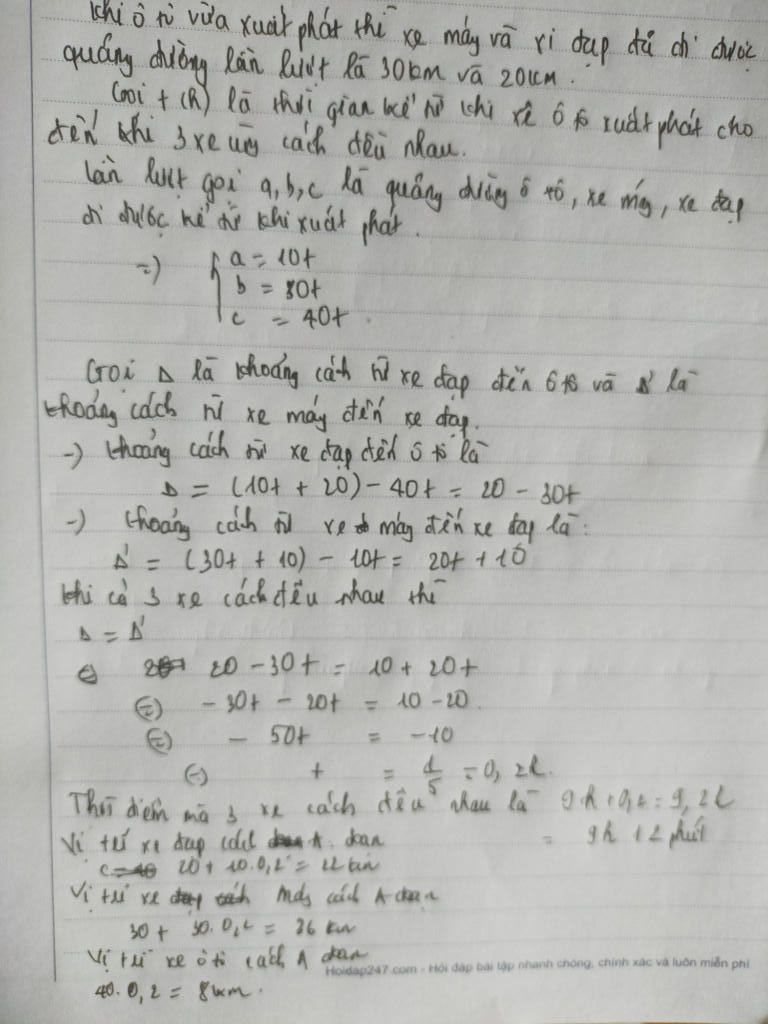 Khi ô tô vừa xuất phát thì xe máy và xe đạp đã đi được
quãng đường lần lượt là 30km và 20km.
Gọi t (h) là thời gian kể từ khi xe ô tô xuất phát cho
đến khi 3 xe cách đều nhau.
Lần lượt gọi a, b, c là quãng đường ô tô, xe máy, xe đạp
đi được kể từ khi xuất phát.
=) { a = 10t
b = 30t
c = 40t.
Gọi Δ là khoảng cách từ xe đạp đến ô tô và Δ' là
khoảng cách từ xe máy đến xe đạp.
-) Khoảng cách từ xe đạp đến ô tô là
Δ = (10t + 20) - 40t = 20 - 30t
-) Khoảng cách từ xe máy đến xe đạp là:
Δ' = (30t + 10) - 10t = 20t + 10
Khi cả 3 xe cách đều nhau thì
Δ = Δ'
(=) 20 - 30t = 10 + 20t
(=) - 30t - 20t = 10 - 20.
(=) - 50t = -10
(=) t = 1/5 = 0,2h.
Thời điểm mà 3 xe cách đều nhau là 9h + 0,2 = 9,2h
= 9h 12 phút
Vị trí xe đạp cách A đoạn
20 + 10.0,2 = 22 km
Vị trí xe máy cách A đoạn
30 + 30.0,2 = 36 km
Vị trí xe ô tô cách A đoạn
40.0,2 = 8km.
Hoidap247.com - Hỏi đáp bài tập nhanh chóng, chính xác và luôn miễn phí